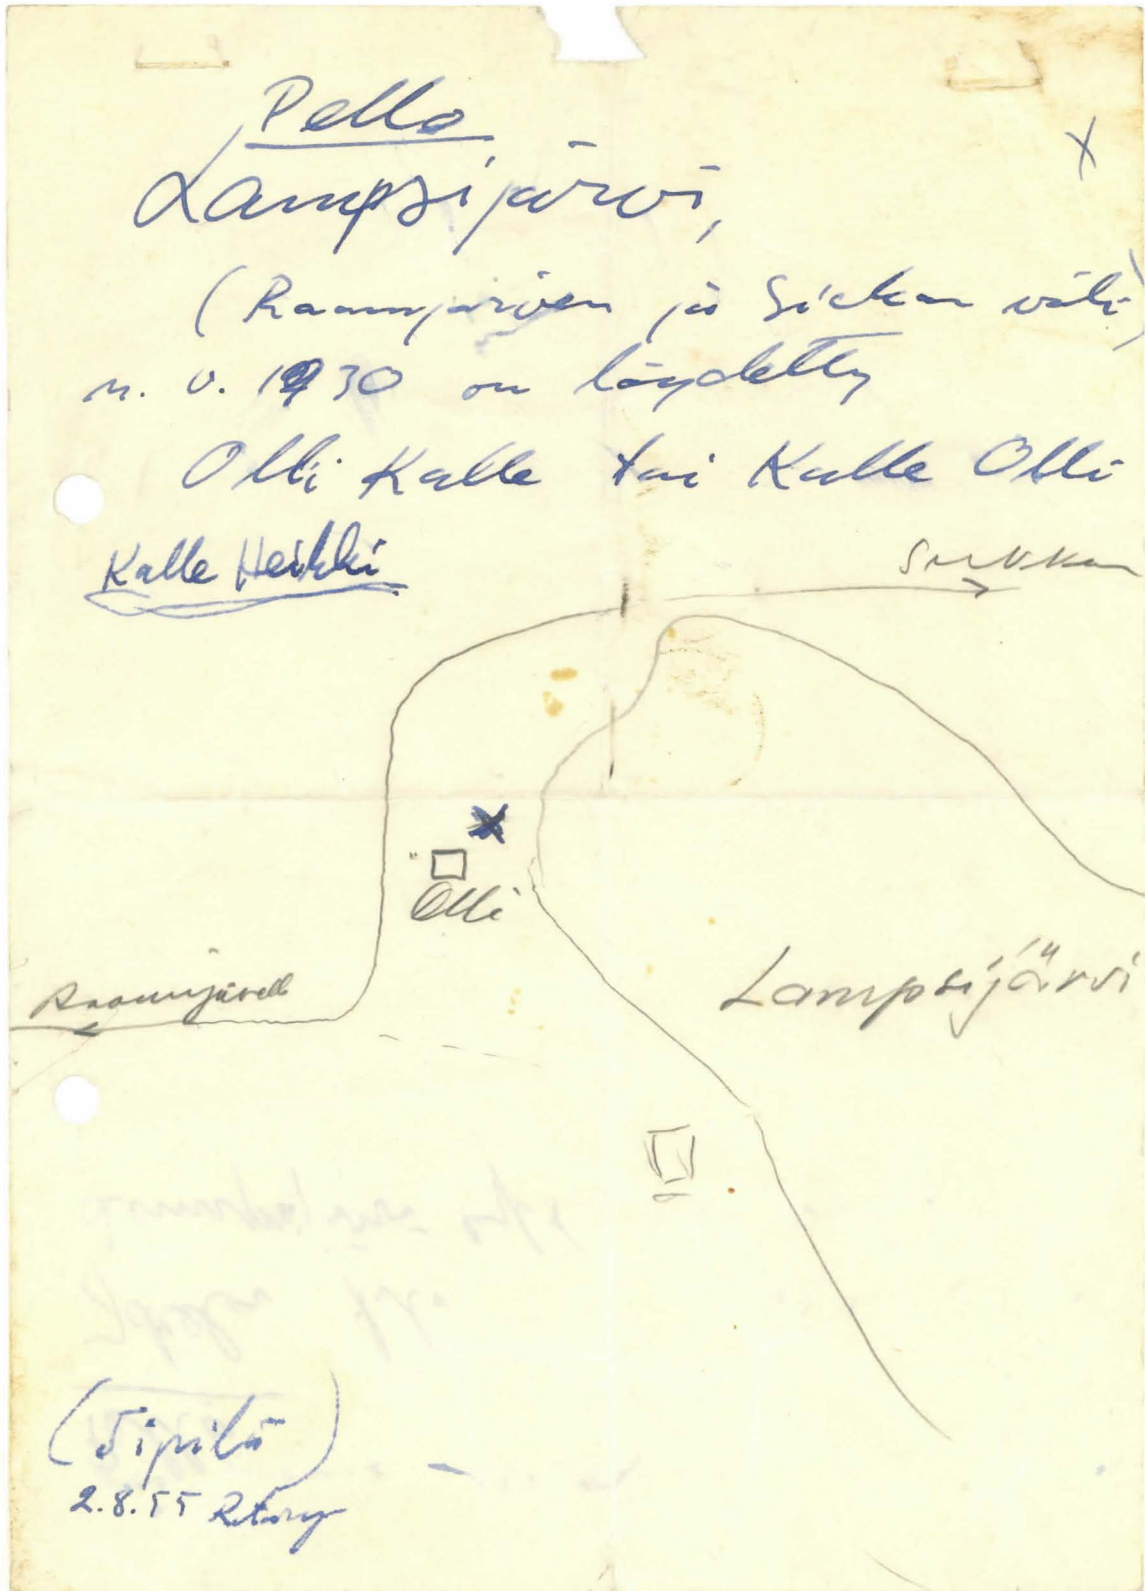 Pello
Lampsijärvi,
(Raamijärven ja Sirkan väli)
n. v. 1930 on löydetty
Olli Kalle tai Kalle Olli
Kalle Heikki
Olli
Lampsijärvi
(Sipilä)
2.8.55